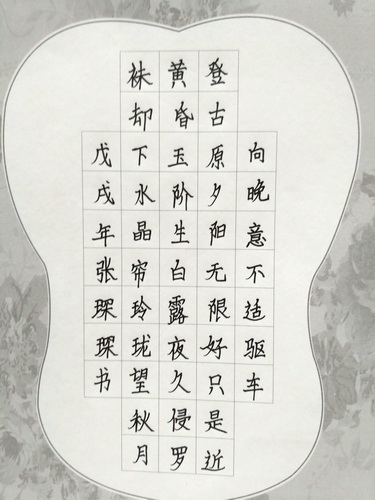 向晚意不适驱车
登古原夕阳无限好只是近
黄昏玉阶生白露夜久侵罗
袜却下水晶帘玲珑望秋月
戊戌年张琛琛书